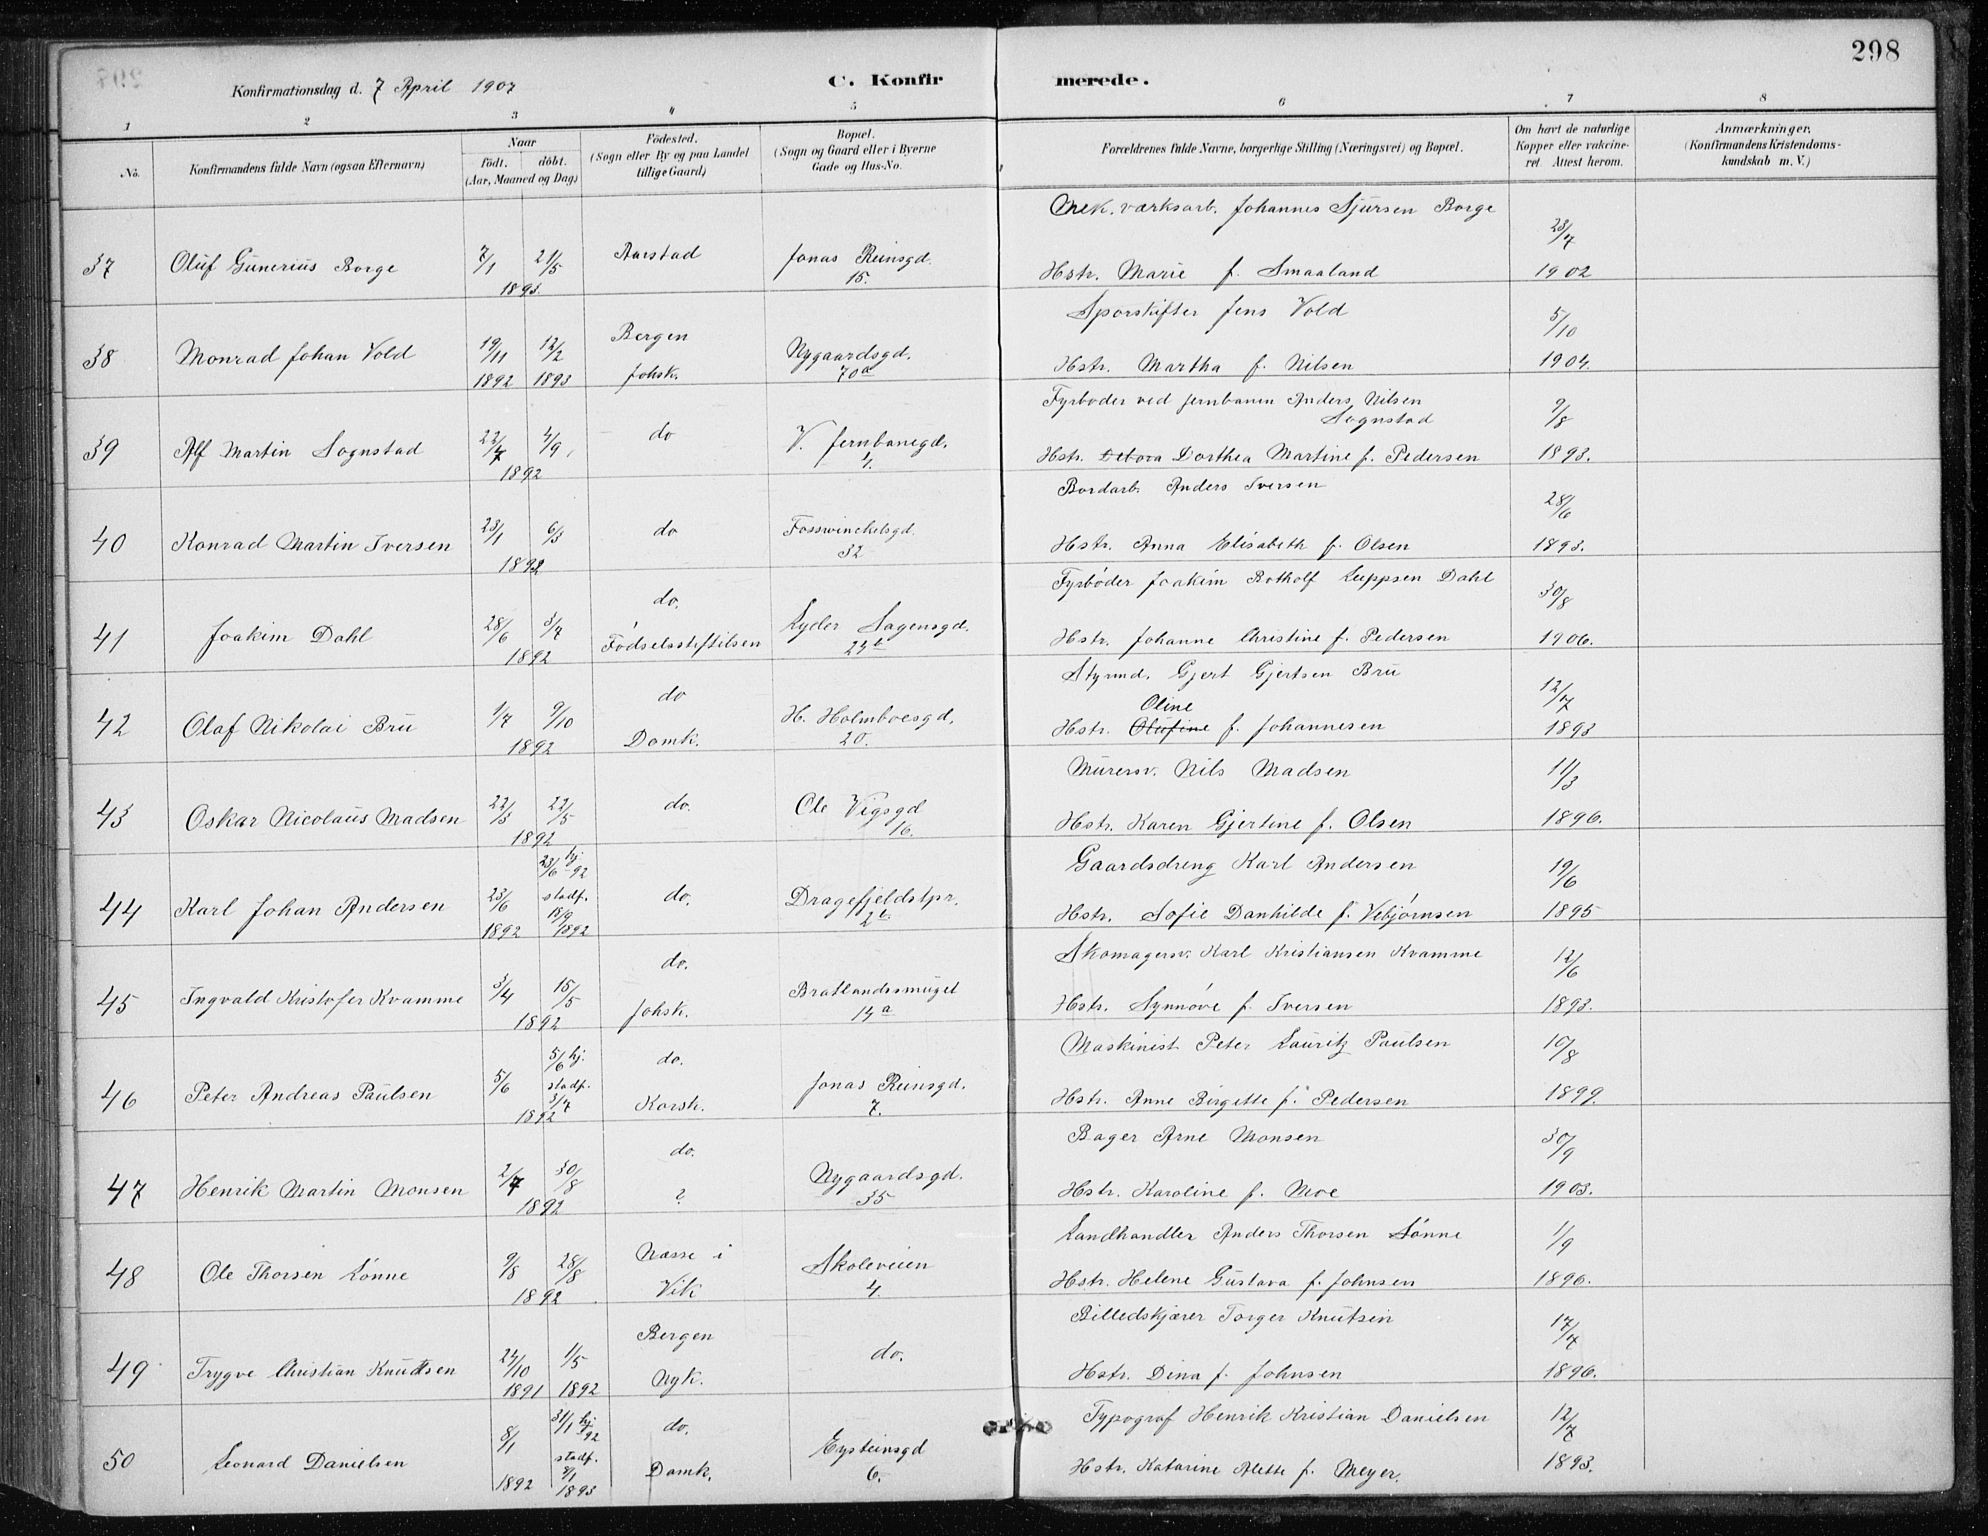 298
Konfirmationsdag d. 7 April 1907
C. Konfir merede.
1 2 3 4 5 6 7 8
No.
Konfirmandens fulde Navn (ogsaa Efternavn)
Naar
født. døbt.
(Aar, Maaned og Dag)
Fødested.
(Sogn eller By og paa Landet
tillige Gaard)
Bopæl.
(Sogn og Gaard eller i Byerne
Gade og Hus-No.
Forældrenes fulde Navne, borgerlige Stilling (Næringsvei) og Bopæl.
Om havt de naturlige
Kopper eller vakcine-
ret. Attest herom.
Anmærkninger.
(Konfirmandens Kristendoms-
kundskab m. V.)
værksarb. Johannes Sjursen Borge
23/7
37 Oluf Gunerius Borge 7/1 21/5 Aarstad Jonas Reinsgd. Hstr. Marie f. Smaaland 1902
1893. 15.
Sporskifter Jens Vold
5/10
38 Monrad Johan Vold 19/11 12/2 Bergen Nygaardsgd. Hstr. Martha f. Nilsen 1904.
1892 1893 Johsk. 70a
Fyrbøder ved Jernbanen Anders Nilsen
Sognstad
9/8
39 Alf Martin Sognstad 22/7 4/9 do V. Jernbanegd. Hstr. Dorthea Martine f. Pedersen 1893.
1892 4.
Bordarb. Anders Iversen
28/6
40 Konrad Martin Iversen 23/1 6/3 do Fosswinckelsgd. Hstr. Anna Elisabeth f. Olsen 1893.
1892 32
Fyrbøder Joakim Botholf Luppsen Dahl
30/8
do.
41 Joakim Dahl 28/6 3/7 Fødselsstiftelsen Lyder Sagensgd. Hstr. Johanne Christine f. Pedersen 1906.
1892 23b
Styrmd. Gjert Gjertsen Bru
12/7
do Oline
42 Olaf Nikolai Bru 1/7 9/10 Domk. H. Holmboesgd. Hstr. Olufine f. Johannesen 1893
1892 20.
Murersv. Nils Madsen
11/3
43 Oskar Nicolaus Madsen 22/3 22/5 do. Ole Vigsgd Hstr. Karen Gjertine f. Olsen 1896.
1892 16.
Gaardsdreng Karl Andersen
19/6
23/6 hj. 92
44 Karl Johan Andersen 23/6 stadf. do. Dragefjeldstpr. Hstr. Sofie Danhilde f. Vebjørnsen 1895
1892 18/9 1892
Skomagersv. Karl Kristiansen Kvamme
12/6
do.
45 Ingvald Kristofer Kvamme 3/4 15/5 Johsk. Bratlandssmuget Hstr. Synnøve f. Iversen 1893.
1892 14a
Maskinist Peter Lauritz Paulsen
10/8
5/6 hj. do.
46 Peter Andreas Paulsen 5/6 stadf. 3/7 Korsk. Jonas Reinsgd. Hstr. Anne Birgitte f. Pedersen 1899.
1892 7.
Bager Arne Monsen
30/9
do.
47 Henrik Martin Monsen 2/7 30/8 ? Nygaardsgd. Hstr. Karoline f. Moe 1903.
1892 35
Landhandler Anders Thorsen Lønne
1/9
Næsse i
48 Ole Thorsen Lønne 9/8 28/8 Vik Skoleveien Hstr. Helene Gustava f. Johnsen 1896.
1892 4.
Billedskjærer Torger Knutsen
17/7
Bergen
49 Trygve Christian Knudtsen 24/10 1/5 Nyk. do. Hstr. Dina f. Johnsen 1896.
1891 1892
Typograf Henrik Kristian Danielsen
12/7
31/1 hj. 92 do.
50 Leonard Danielsen 8/1 stadf. Domk. Eysteinsgd Hstr. Katarine Alette f. Meyer. 1893.
1892 1893 6.